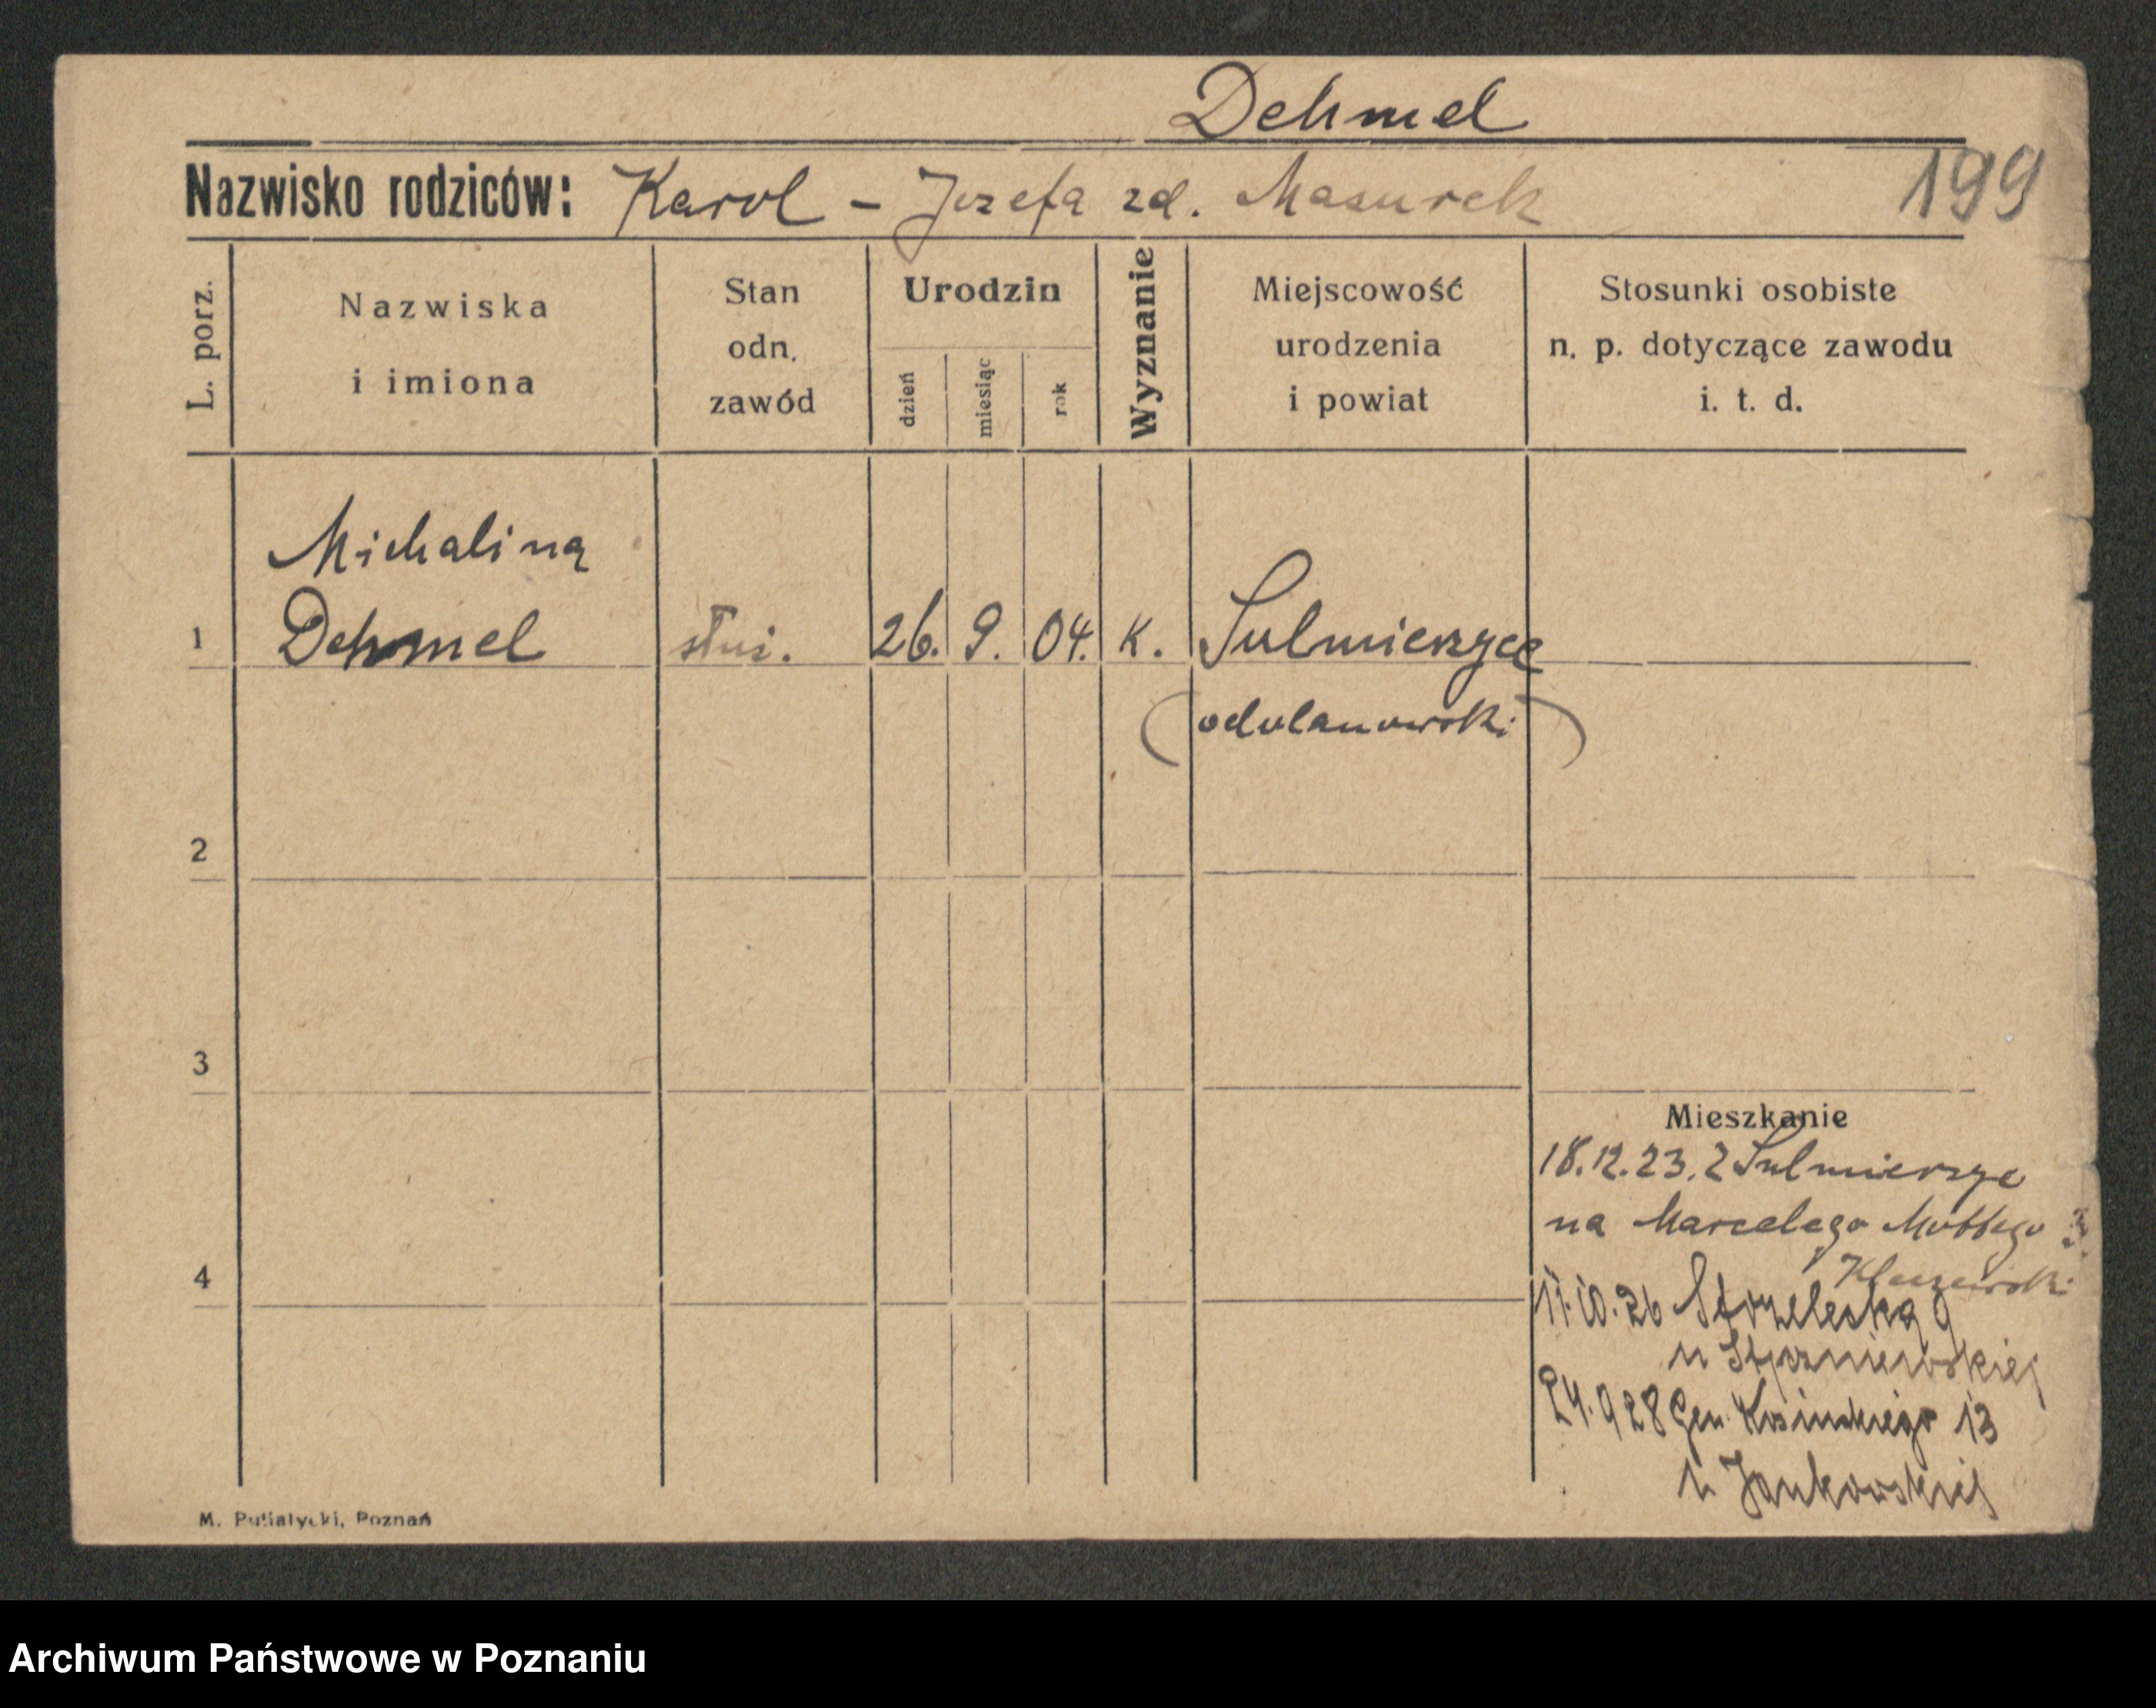 Dehmel
Nazwisko rodziców: Karol - Jozefa zd. Masurek
199
L. porz.
Nazwiska
i imiona
Stan
odn.
zawód
Urodzin
dzień
miesiąc
rok
Wyznanie
Miejscowość
urodzenia
i powiat
Stosunki osobiste
n. p. dotyczące zawodu
i. t. d.
Michalina
1 Dehmel służ. 26. 9. 04. K. Sulmierzyce
(odolanowski)
2
3
Mieszkanie
18.12.23. z Sulmierzyc
na Marcelego Mottego 3.
4
11.10.26 Strzelecka 9
u Styczniewskiej
24.9 28 Gen. Kosinskiego 13
u Jankowskiej
M. Putiatycki, Poznań
Archiwum Państwowe w Poznaniu